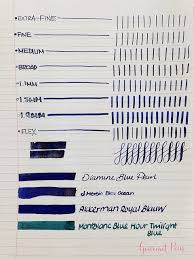 EXTRA-FINE
FINE
MEDIUM
BROAD
1.1MM
1.5MM
1.9MM
FLEX
Diamine Blue Pearl
J. Herbin Bleu Ocean
Akkerman Royal Blauw
Montblanc Blue Hour Twilight
Blue
Gourmet Pens